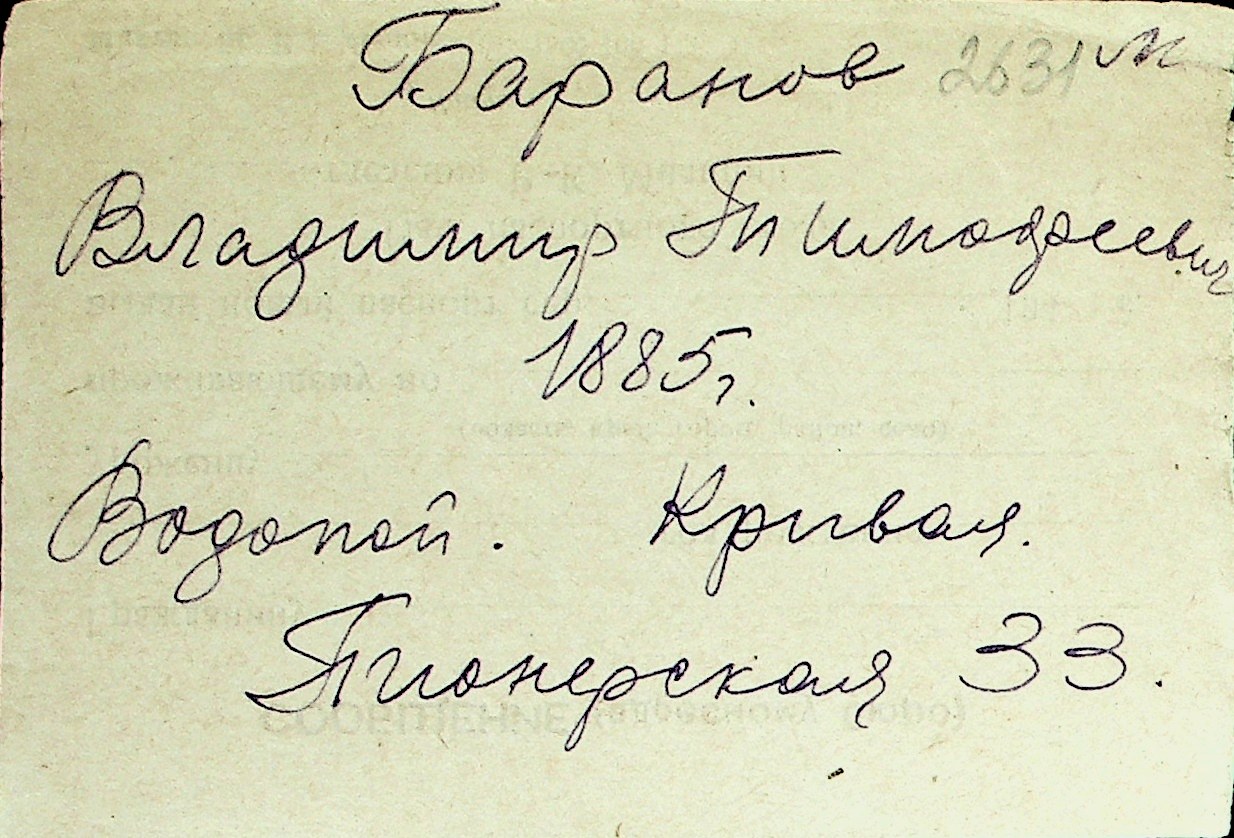 Баранов 2631 м
Владимир Тимофеевич
1885г.
Водопой. Кривая.
Пионерская 33.